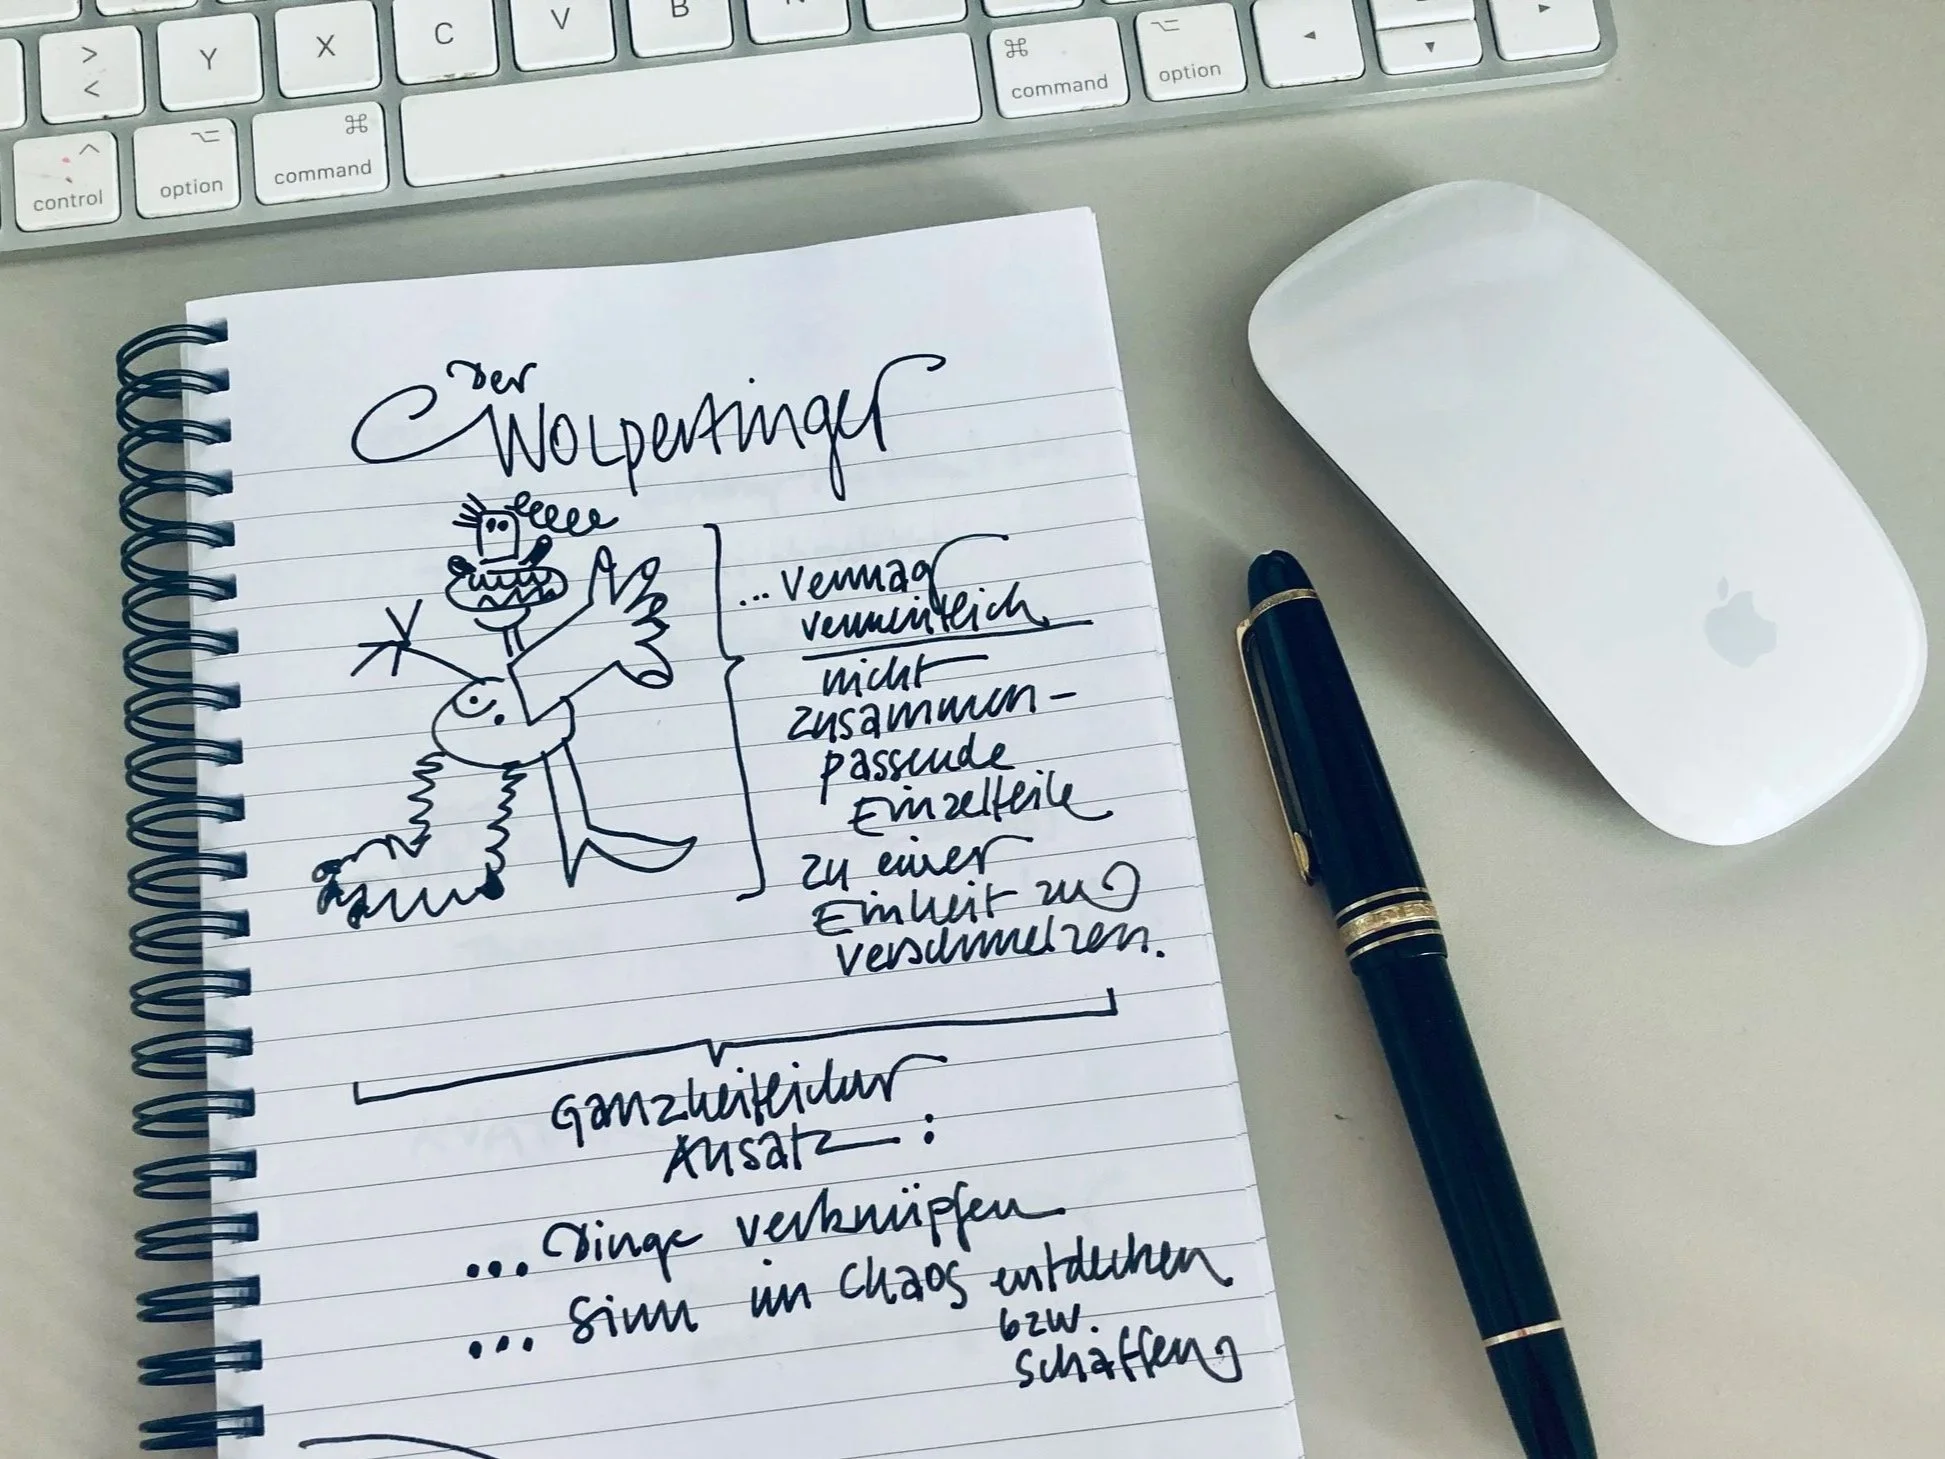 >
<
Y
X
C
V
B
N
⌘
command
⌥
option
◄
▼
►
^
control
⌥
option
⌘
command
Der
Wolpertinger
...vermag
vermeintlich
nicht
zusammen-
passende
Einzelteile
zu einer
Einheit zu
verschmelzen.
Ganzheitlicher
Ansatz:
...Dinge verknüpfen
...Sinn im Chaos entdecken
bzw.
schaffen